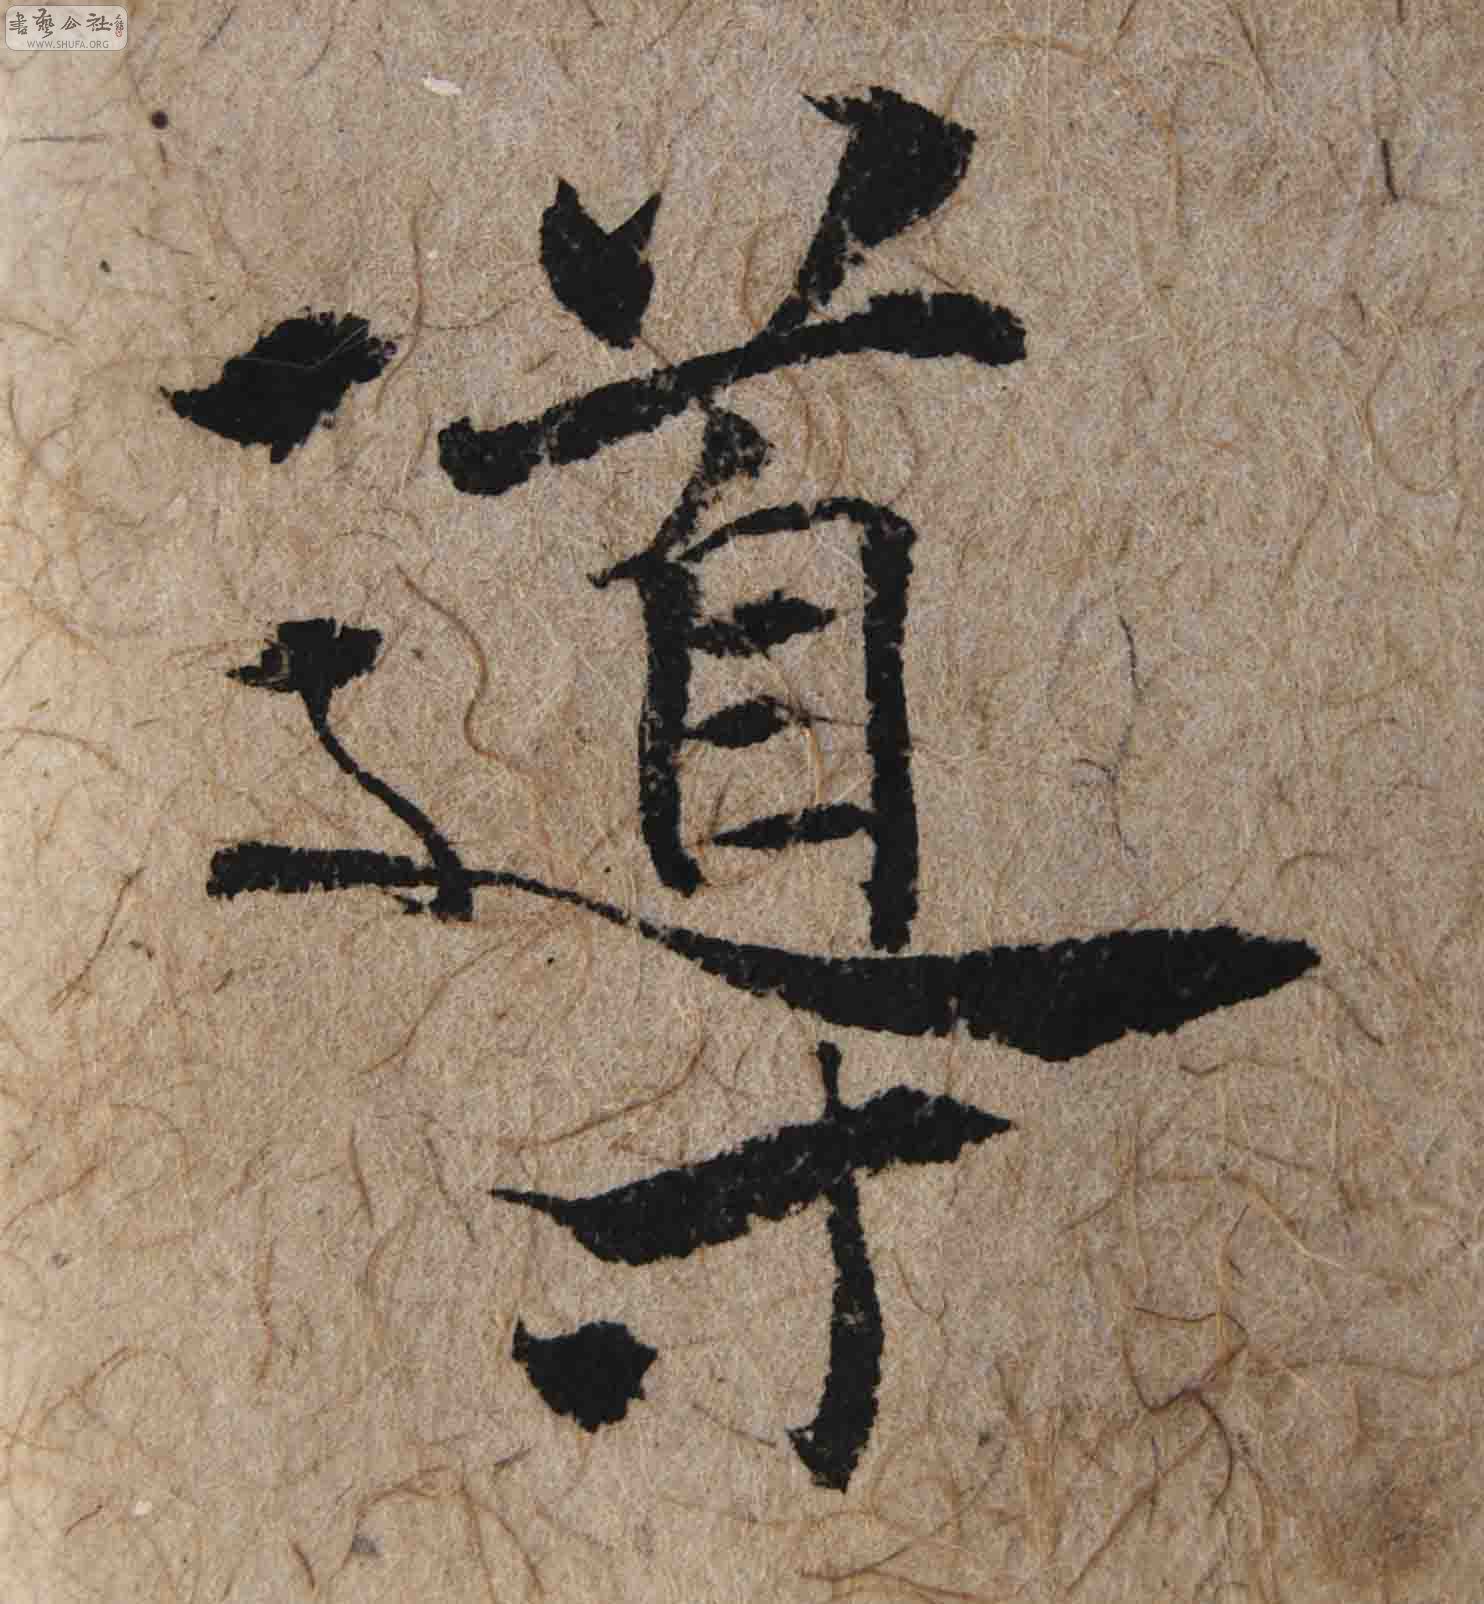 書藝公社
WWW.SHUFA.ORG
導